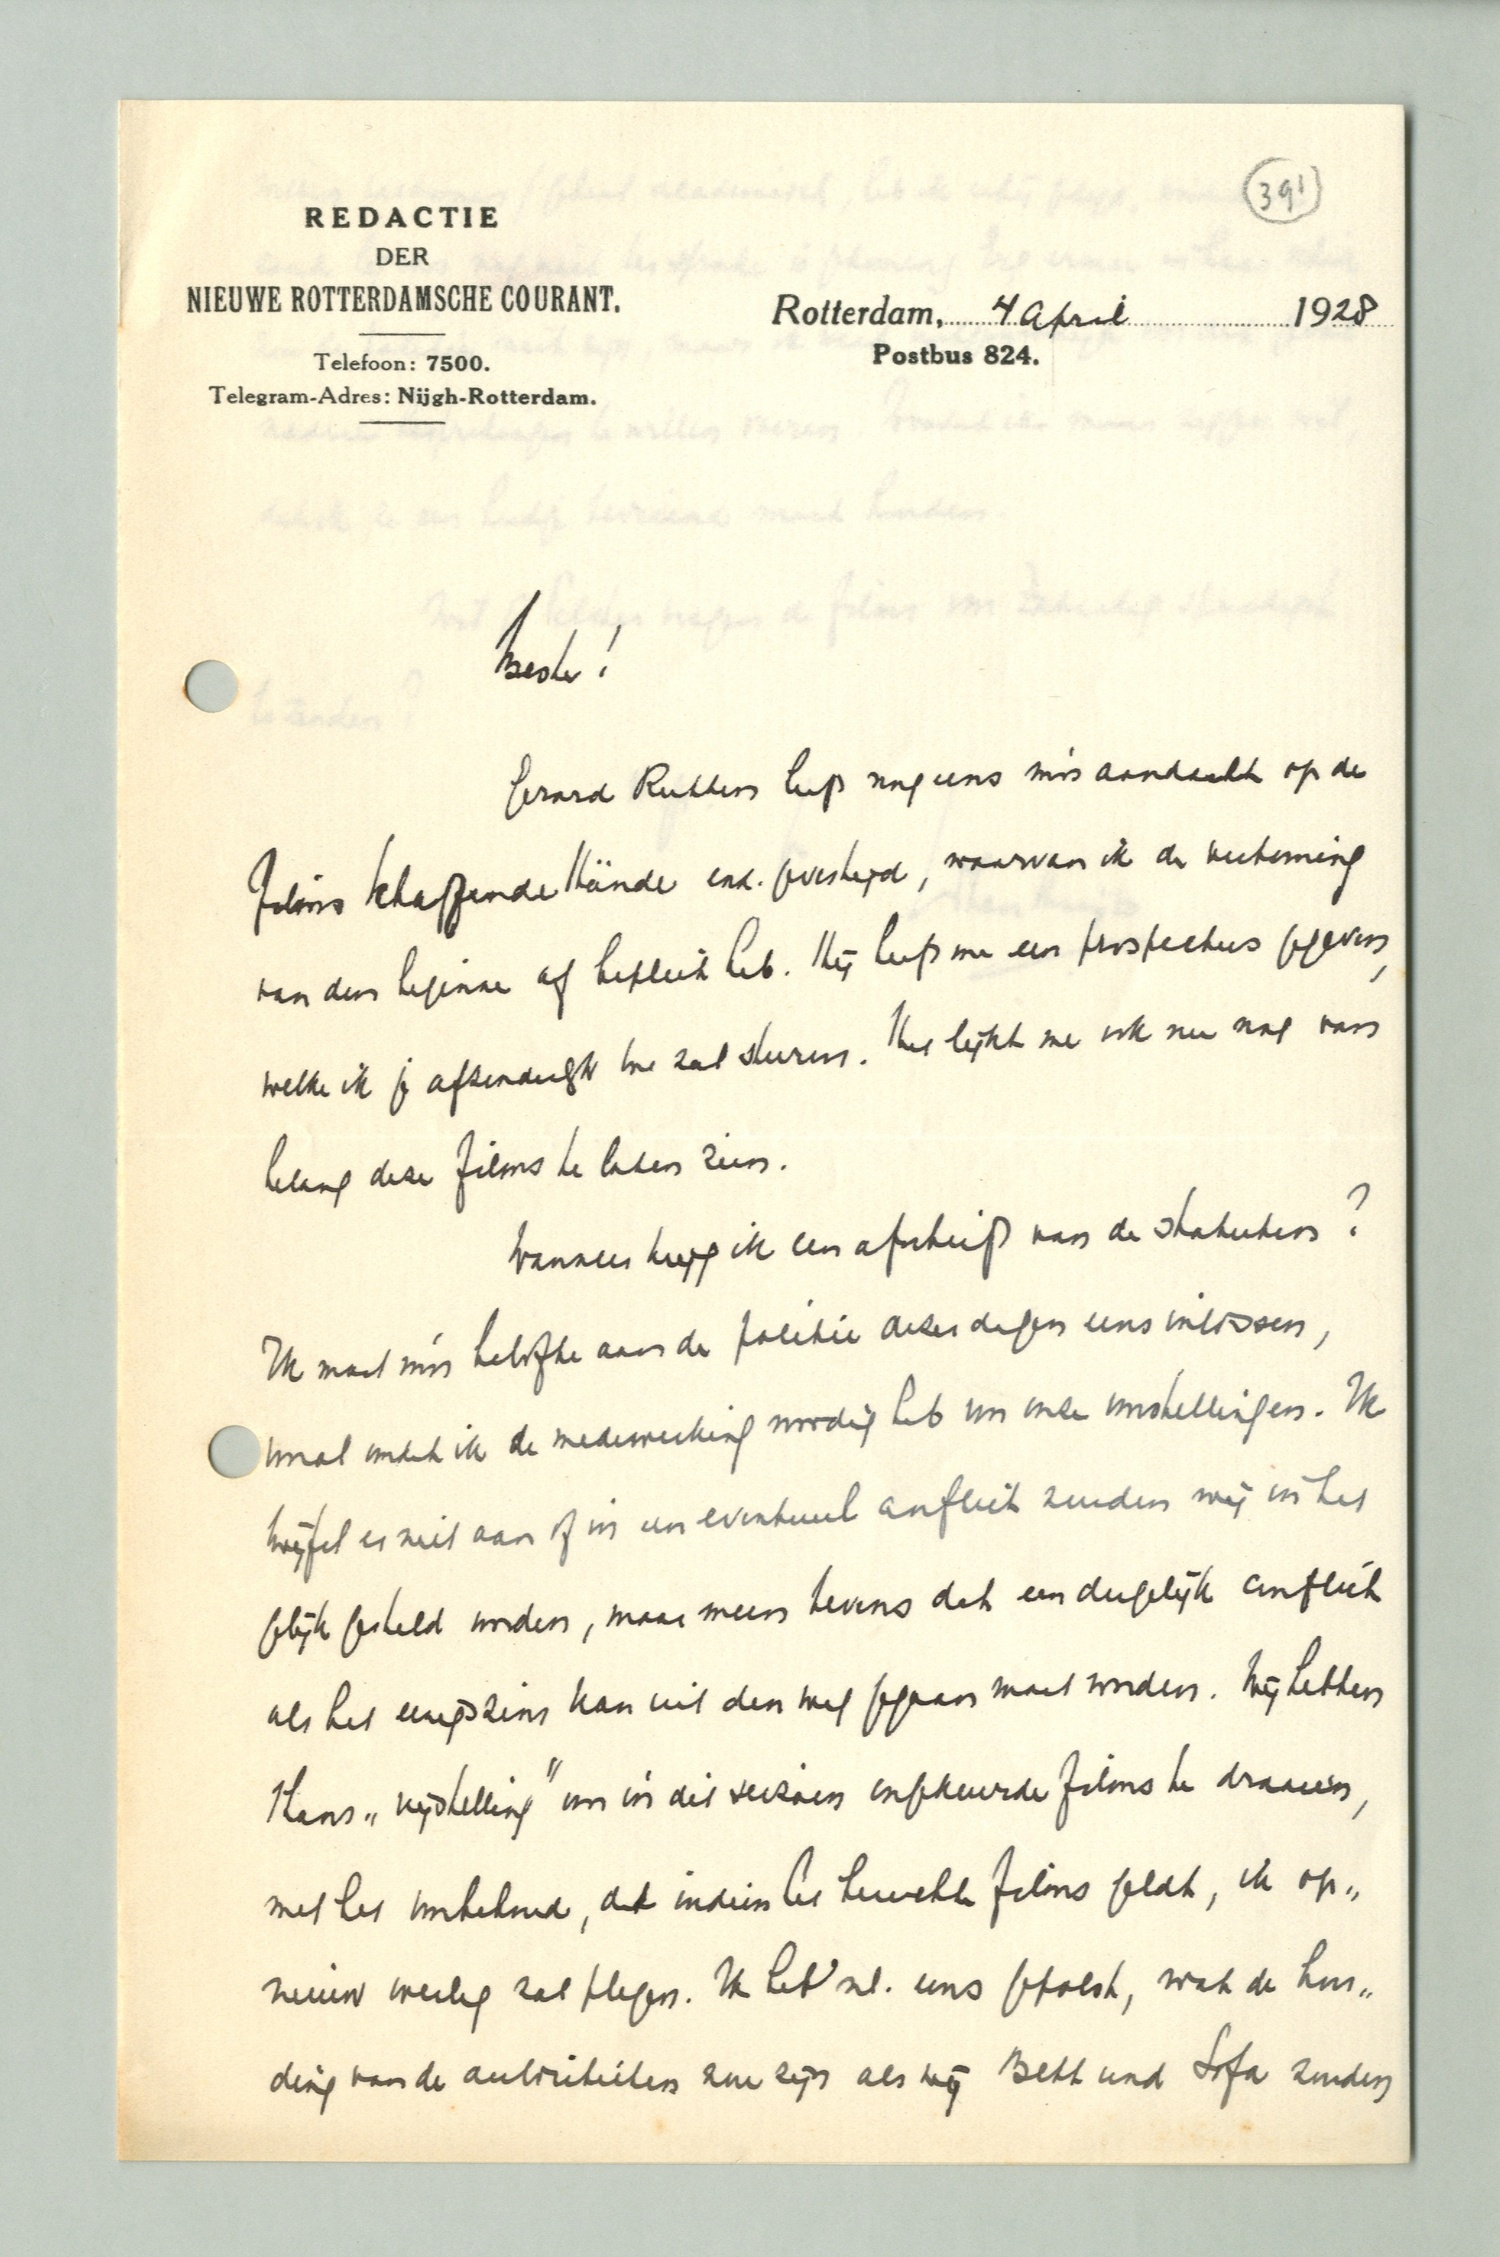 391
REDACTIE
DER
NIEUWE ROTTERDAMSCHE COURANT.
Rotterdam, 4 April 1928
Postbus 824.
Telefoon: 7500.
Telegram-Adres: Nijgh-Rotterdam.
Beste!
Gerard Rutten heeft nog eens mijn aandacht op de
films Schaffende Hände enz. gevestigd, waarvan ik de vertooning
van den beginne af bepleit heb. Hij heeft me een prospectus gegeven,
welke ik je afzonderlijk toe zal sturen. Het lijkt me ook nu nog van
belang deze films te laten zien.
Wanneer krijg ik een afschrift van de statuten?
Ik moet mijn belofte aan de politie dezer dagen eens inlossen,
vooral omdat ik de medewerking noodig heb voor onze voorstellingen. Ik
twijfel er niet aan of in een eventueel conflict zouden wij in het
gelijk gesteld worden, maar meen tevens dat een dergelijk conflict
als het eenigszins kan uit den weg gegaan moet worden. Wij hebben
thans „vrijstelling" om in dit seizoen ongekeurde films te draaien,
met het voorbehoud, dat indien het bewuste films geldt, ik op„
nieuw overleg zal plegen. Ik heb nl. eens gepolst, wat de hou„
ding van de autoriteiten zou zijn als wij Bett und Sofa zouden